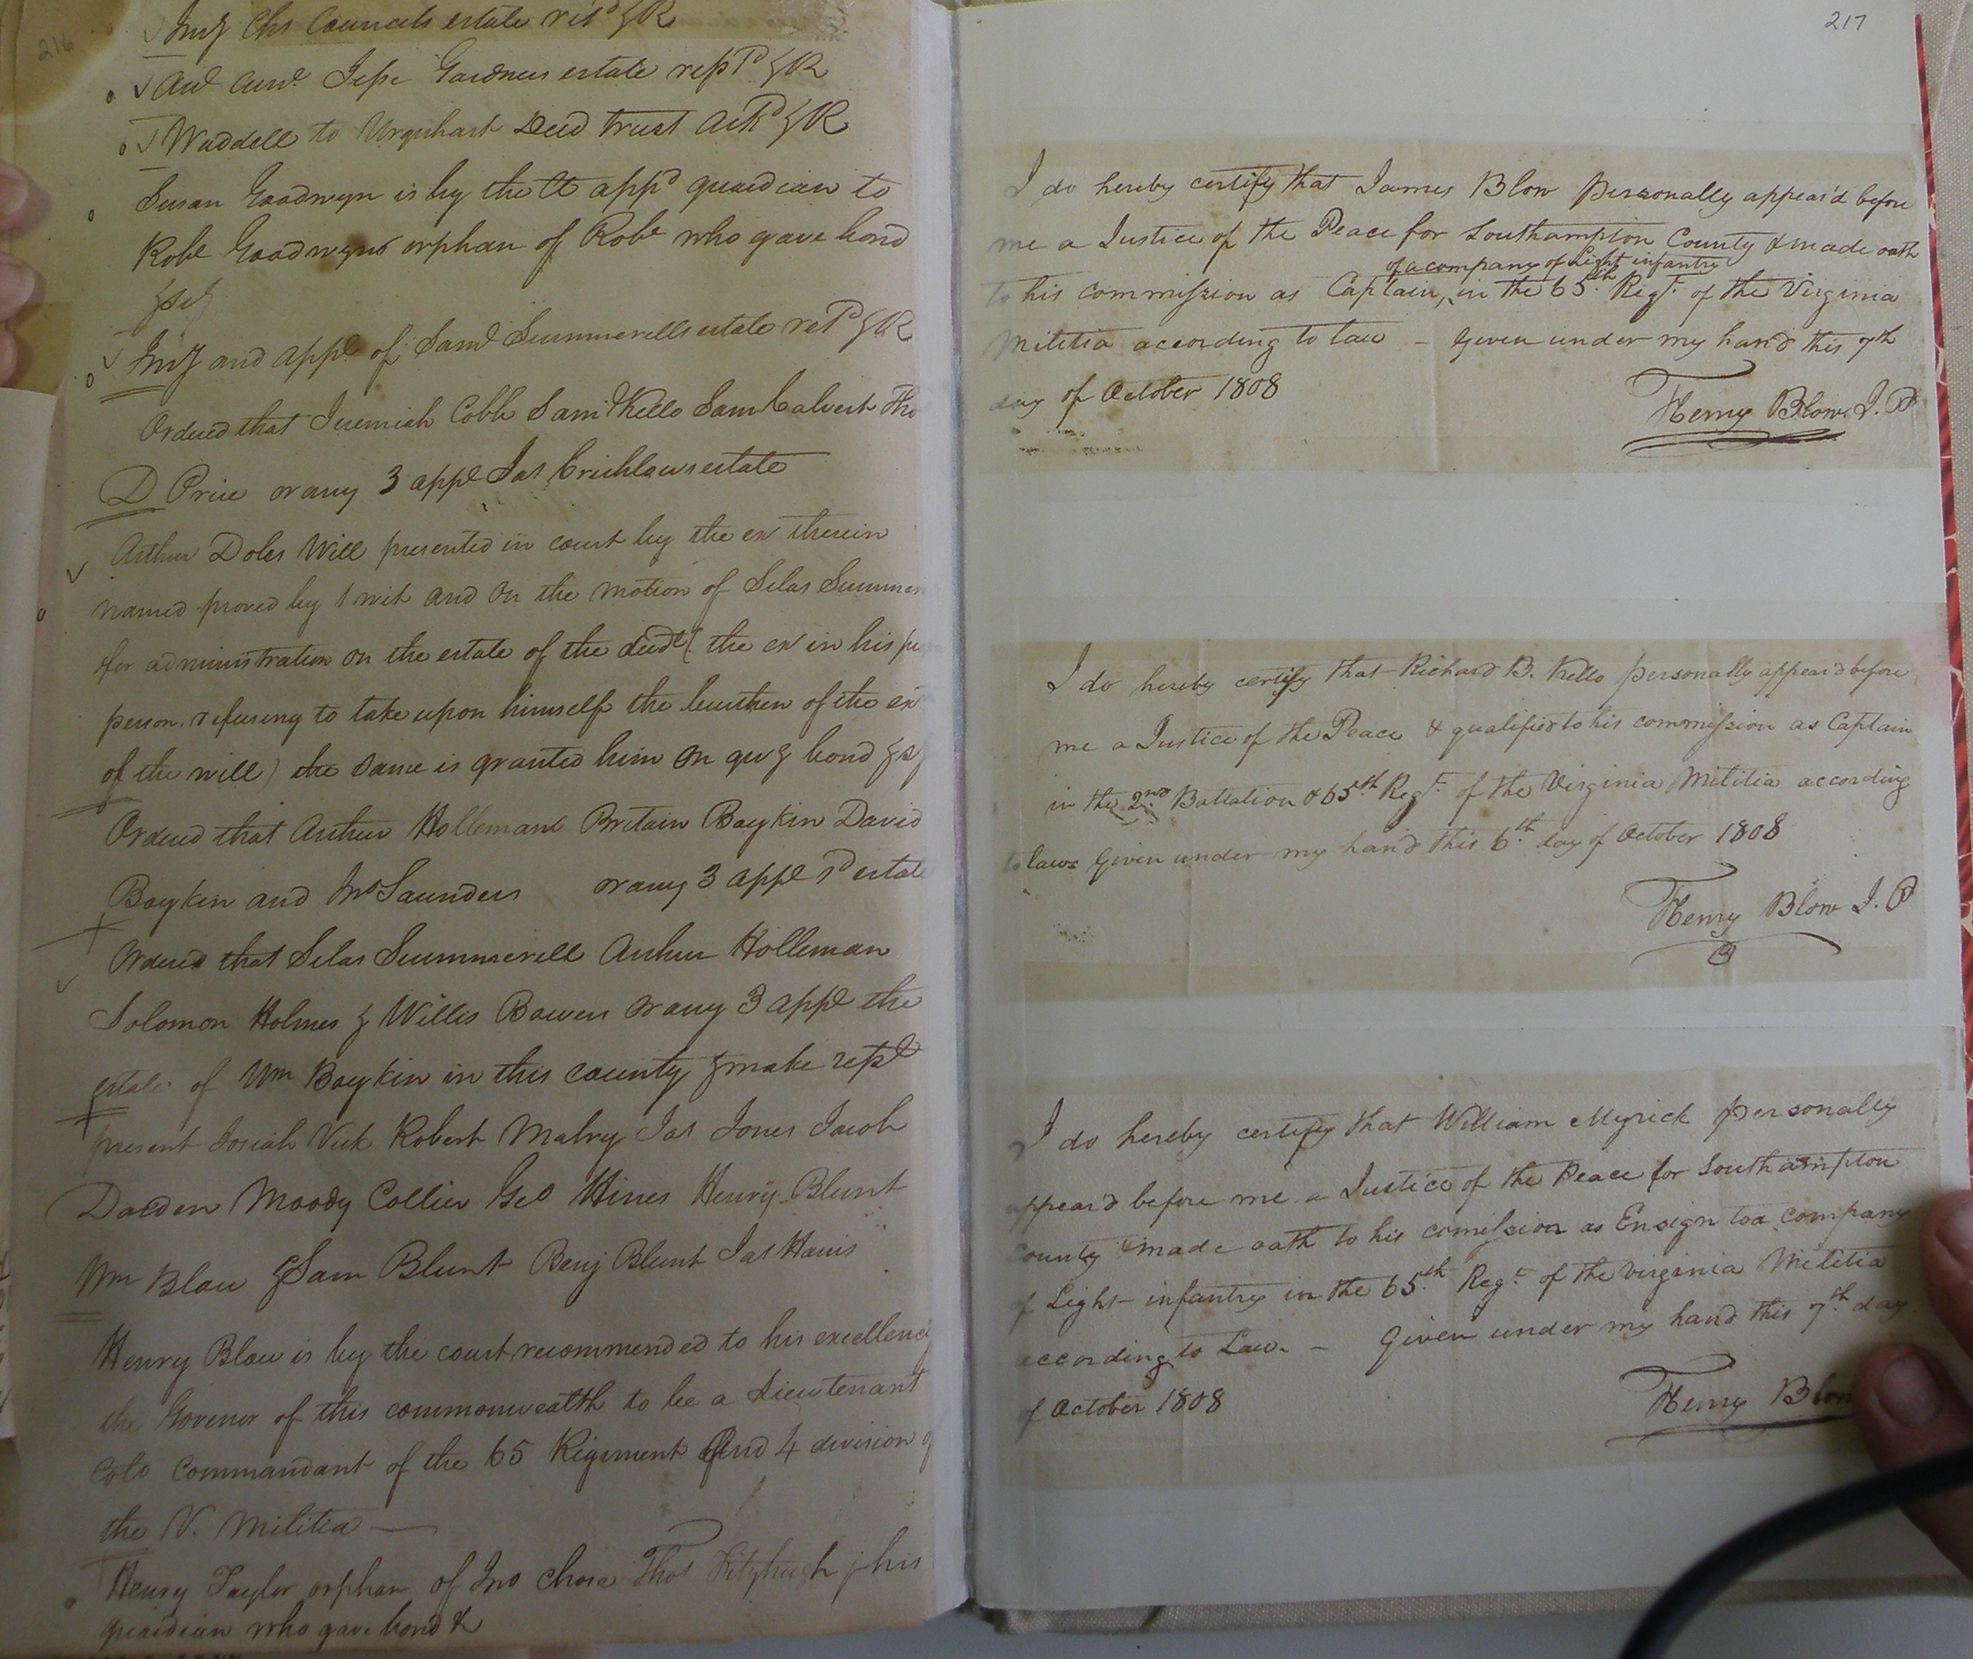 216
Inv Chs Councils estate retd & R
Aud Curt Jesse Gardners estate repd & R
Waddell to Urquhart Deed trust ackd & R
Susan Goodwyn is by the Ct appd guardian to
Robt Goodwyns orphan of Robt who gave bond
Inv and appt of Saml Summerells estate retd & R
Ordered that Jeremiah Cobb Saml Kello Sam Calvert Tho
D Price or any 3 appe Jas Crichlows estate
Arthur Doles Will presented in court by the ex therein
named proved by 1 wit and on the motion of Silas
for administration on the estate of the decdt (the ex in his
person refusing to take upon himself the burthen of the ex
of the will) the same is granted him on givg bond &
Ordered that Arthur Holleman Britain Boykin David
Boykin and Jno Saunders or any 3 appe sd estate
Ordered that Silas Summerell Arthur Holleman
Solomon Holmes & Willis Bowen or any 3 appe the
estate of Wm Boykin in this county & make rept
present Josiah Vick Robert Malry Jas Jones Jacob
Darden Moody Collier Geo Hines Henry Blunt
Wm Blow & Sam Blunt Benj Blunt Jas Harris
Henry Blow is by the court recommended to his excellency
the Govenor of this commonwealth to be a Lieutenant
Colo Commandant of the 65 Regiment and 4 division of
the V. Militia —
Henry Taylor orphan of Jno chose Thos Fitzhugh his
guardian who gave bond &
217
I do hereby certify that James Blow personally appear'd before
me a Justice of the Peace for Southampton County & made oath
of a company of Light infantry
to his commission as Captain, in the 65th Regt. of the Virginia
Militia according to law – Given under my hand this 7th
day of October 1808
Henry Blow J. P
I do hereby certify that Richard B. Kello personally appear'd before
me a Justice of the Peace & qualified to his commission as Captain
in the 2nd Battalion & 65th Regt. of the Virginia Militia according
to law. Given under my hand this 6th day of October 1808
Henry Blow J. P
I do hereby certify that William Myrick personally
appear'd before me a Justice of the Peace for Southampton
County & made oath to his comission as Ensign to a company
of Light infantry in the 65th Regt. of the Virginia Militia
according to Law. – Given under my hand this 7th day
of October 1808
Henry Blow